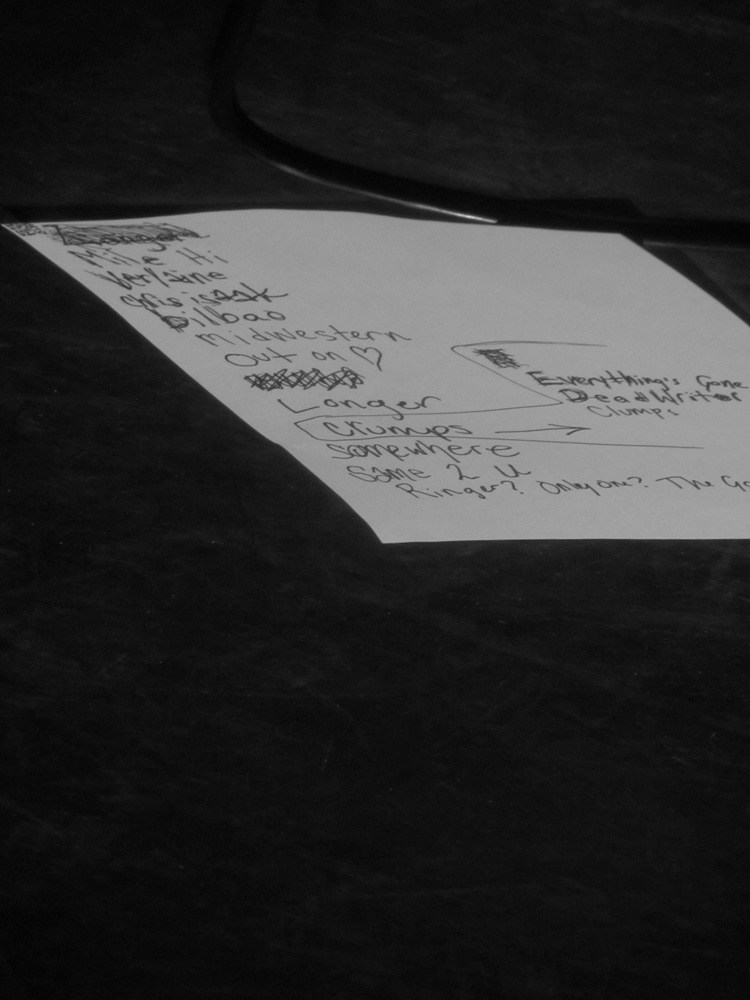 Mile Hi
Verlaine
chris isaak
bilbao
midwestern
Out on ♡
Longer
Clumps →
somewhere
Same 2 U
Ringer? Only one? The
Everything's Gone
Dead Writer
Clumps